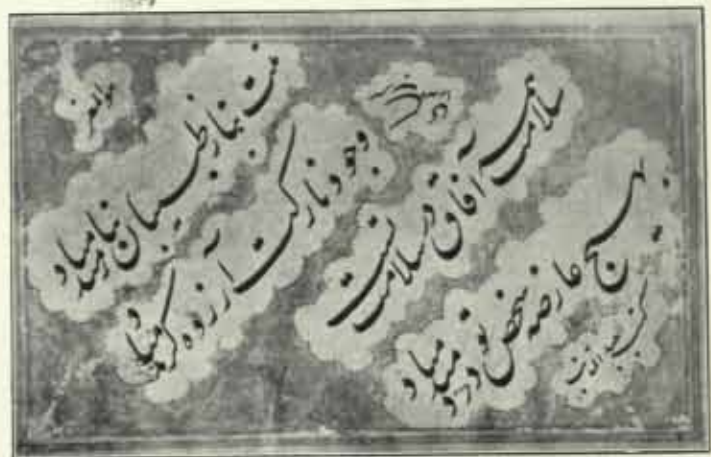 تنت بناز طبیبان نیازمند مباد
وجود نازکت آزرده کزند مباد
سلامت همه آفاق در سلامت تست
بهیچ عارضه شخص تو دردمند مباد